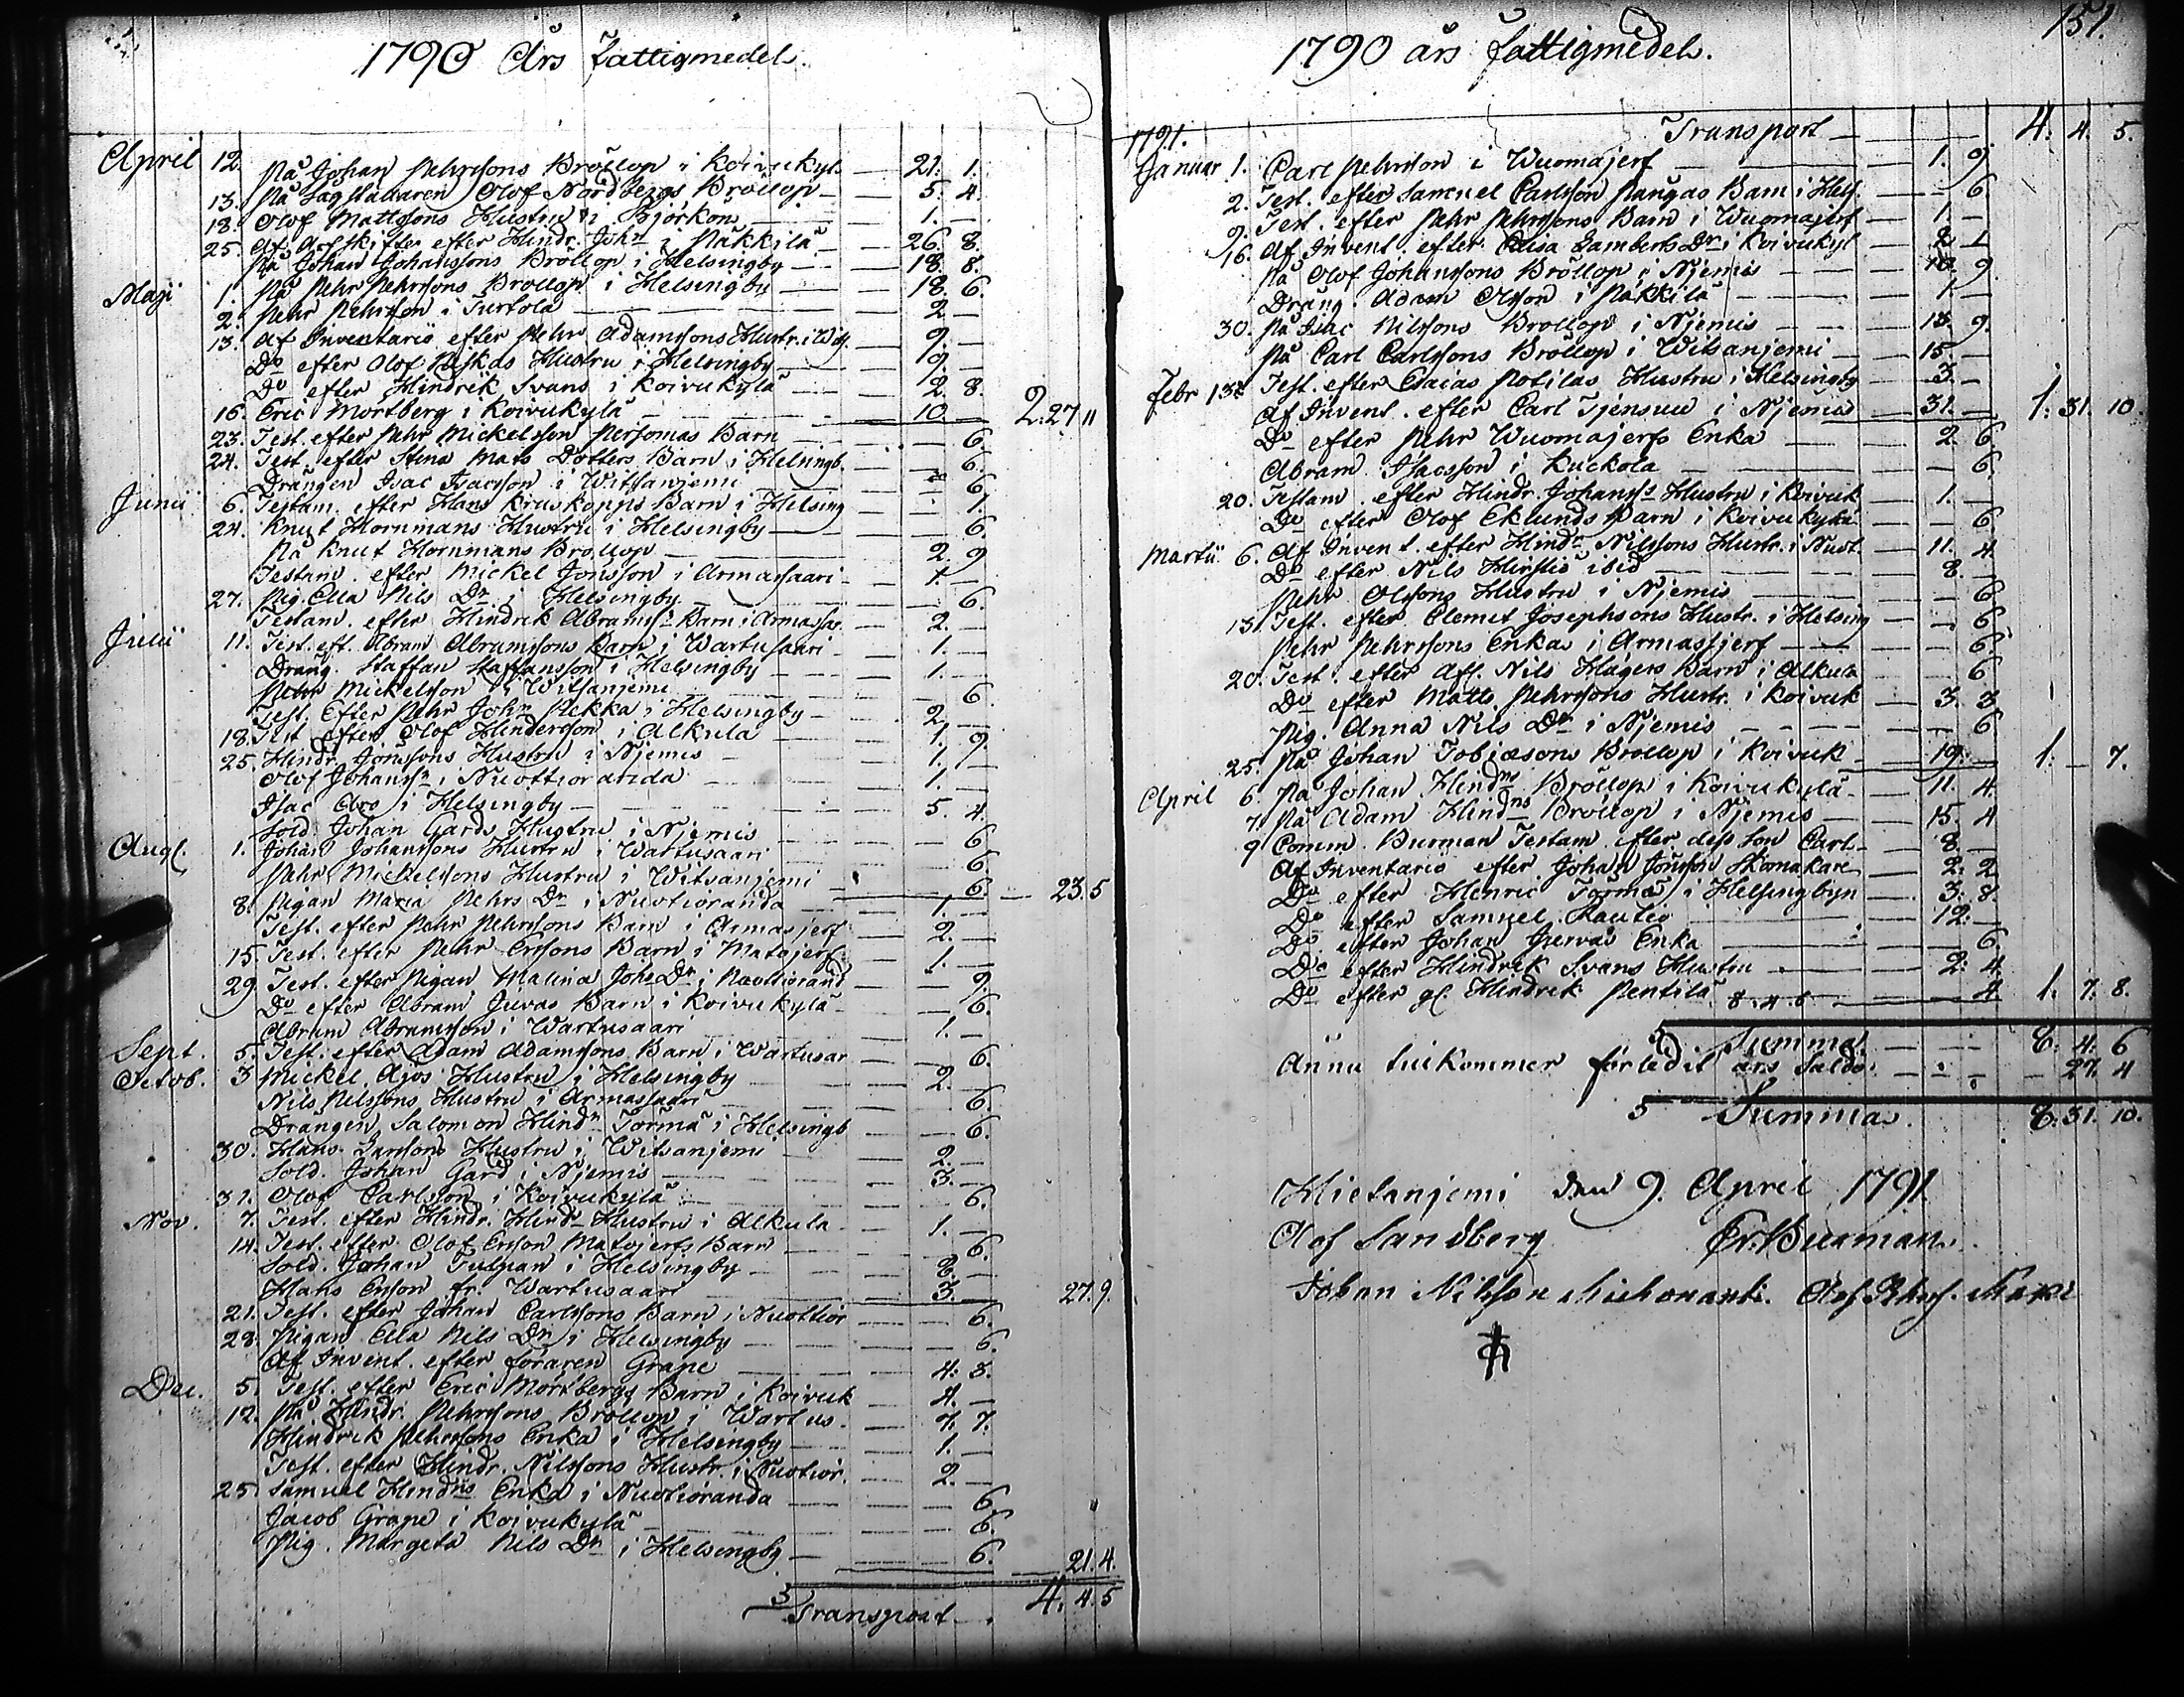 1790 Års Fattigmedel.
April 12. På Johan Pehrssons Bröllop i Koivukyl. — 21. 1.
13. På Lagställaren Olof Nordbergs Bröllop — 5. 4.
18. Olof Mattssons Hustru i Björkon — 1. —
25. Af Arfskifte efter Hindr. Joh:n i Päkkilä — 26. 8.
På Johan Johanssons Bröllop i Helsingby — 18. 8.
Maji 1. På Pehr Pehrssons Bröllop i Helsingby — 18. 6.
2. Pehr Pehrsson i Turtola — 2 —
13. Af Inventario efter Pehr Adamssons Hustr. i — 9. —
Do efter Olof Hustru i Helsingby — 9. —
Do efter Hindrik Svans i Koivukylä — 2. 8.
16. Eric Mörtberg i Koivukylä — 10. — 2. 27 11
23. Test. efter Pehr Mickelsson Barn — 6.
24. Test. efter Stina Mats Dotters Barn i Helsingb. — 6.
Drängen Isac Isacsson i Witsanjemi — 6
Junii 6. Testam. efter Hans Kruskopps Barn i Helsing — 1.
24. Knut Hornmans Hustru i Helsingby — 6.
På Knut Hornmans Bröllop — 2. 9
Testam. efter Mickel Jönsson i Armassaari — 1. —
27. Pig. Ella Nils Dr i Helsingby — 6.
Testam. efter Hindrik Abramss: Barn i Armassar. — 2. —
Julii 11. Test. eft. Abram Abramssons Barn i Wartusaari — 1. —
Dräng. Staffan Staffansson i Helsingby — 1. —
Pehr Mickelsson i Witsanjemi — 6.
Test. Efter Pehr Joh:n Pekka i Helsingby — 2. —
18. Test. efter Olof Hindersson i Alkula — 1. 9.
25. Hindr. Jönssons Hustru i Njemis — 1. —
Olof Johanss:n i Nuottioranda — 1. —
Isac Aro i Helsingby — 5. 4.
Sold. Johan Gards Hustru i Njemis — 6
Aug. 1. Johan Johanssons Hustru i Wartusaari — 6
Pehr Mickelssons Hustru i Witsanjemi — 6. — 23. 5
8. Pigan Maria Pehrs Dr i Nuotioranda — 1. —
Test. efter Pehr Pehrssons Barn i Armasjerf — 2. —
15. Test. efter Pehr Erssons Barn i Matojerf — 1. —
29. Test. efter Pigan Malina Johs Dr i — 9.
Do efter Abram Juvas Barn i Koivukylä — 6.
Abram Abramsson i Wartusaari — 1. —
Sept. 5. Test. efter Adam Adamssons Barn i Wartusar — 6.
Octob. 3 Mickel Ajos Hustru i Helsingby — 2. —
Nils Nilssons Hustru i Armassaari — 6.
Drängen Salomon Hind:n Törmä i Helsingb — 6.
30. Hans Larssons Hustru i Witsanjemi — 2. —
Sold. Johan Gard i Njemis — 3. —
31. Olof Carlsson i Koivukylä — 6.
Nov. 7. Test. efter Hindr. Hind:s Hustru i Alkula — 1. —
14. Test. efter Olof Ersson Matojerfs Barn — 6.
Sold. Johan Tulpan i Helsingby — 2. —
Hans Ersson fr. Wartusaari — 3. — 27. 9.
21. Test. efter Johan Carlssons Barn i Nuottior — 6.
28. Pigan Ella Nils Dr i Helsingby — 6.
Af Invent. efter föraren Grape — 4. 8.
Dec. 5. Test. efter Eric Mörtbergs Barn i Koivuk — 4. —
12. På Hindr. Pehrssons Bröllop i Wartus. — 7. 7.
Hindrik Pehrssons Enka i Helsingby — 1. —
Test. efter Hindr. Nilssons Hustr. i Nuotior. — 2. —
25. Samuel Hind:ns Enka i Nuotioranda — 6
Jacob Grape i Koivukylä — 6.
Pig. Margeta Nils Dr i Helsingby — 6. — 21. 4.
Transport. 4. 4. 5
151.
1790 års fattigmedel.
1791. Transport — 4. 4. 5.
Januar 1. Carl Pehrsson i Wuomajerf — 1. 9.
2. Test. efter Samuel Carlsson Pangas Barn i Hels. — 6.
9. Test. efter Pehr Pehrssons Barn i Wuomajerf — 1. —
16. Af Invent. efter Lamberts Dr i Koivukyl — 2. 1
På Olof Johanssons Bröllop i Njemis — 10. 9.
Dräng. Adam Olsson i Päkkilä — 1. —
30. På Isac Nilssons Bröllop i Njemis — 18. 9.
På Carl Carlssons Bröllop i Witsanjemi — 15. —
Febr 13. Test. efter Esaias Potilas Hustru i Helsingby — 3. —
Af Invent. efter Carl Tjensuu i Njemis — 31. — 1. 31. 10.
Do efter Pehr Wuomajerfs Enka — 2. 6.
Abram Isacsson i Kuckola — 6.
20. Testam. efter Hindr. Johanss:s Hustru i Koivuk — 1. —
Do efter Olof Eklunds Barn i Koivukylä — 6.
Martii 6. Af Invent. efter Hindr Nilssons Hustr. i Nuot. — 11. 4
Do efter Nils ibid — 8. —
Pehr Olssons Hustru i Njemis — 6
13. Test. efter Clemet Josephsons Hustr. i Helsing — 6
Pehr Pehrssons Enka i Armasjerf — 6.
20. Test. efter Afl. Nils Hagers Barn i Alkula — 6
Do efter Matts Pehrssons Hustr. i Koivuk — 3. 3
Pig. Anna Nils Dr i Njemis — 6
25. På Johan Tobiæsons Bröllop i Koivuk — 19. — 1. — 7.
April 6. På Johan Hind:ns Bröllop i Koivukylä — 11. 4.
7. På Adam Hind:ns Bröllop i Njemis — 15. 4
9 Comm. Burman Testam. efter dess son Carl — 8. —
Af Inventario efter Johan Jönsson Skomakare — 2. 2
Do efter Henric Törmä i Helsingbyn — 3. 8.
Do efter Samuel Rautio — 12. —
Do efter Johan Enka — 6.
Do efter Hindrik Svans Hustru — 2. 4.
Do efter gl. Hindrik Pentilä — 4. 1. 7. 8.
8. 4. 6
Summa — 8. 4. 6
Ännu tilkommer förledit års Saldo — 27. 4
Summa. 8. 31. 10.
Hietanjemi den 9. April 1791
Olof Sandberg Er. Burman.
Johan Nilsson